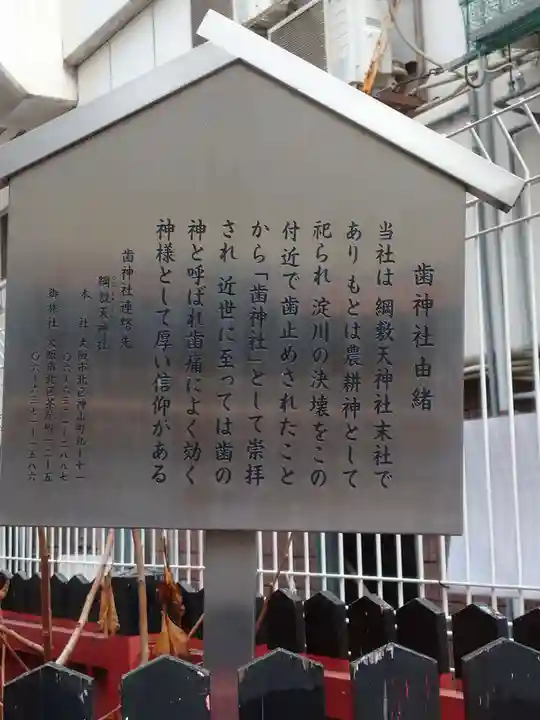 歯神社由緒
当社は綱敷天神社末社で
ありもとは農耕神として
祀られ淀川の決壊をこの
付近で歯止めされたこと
から「歯神社」として崇拝
され 近世に至っては歯の
神と呼ばれ歯痛によく効く
神様として厚い信仰がある
歯神社連絡先
綱敷天神社
本 社 大阪市北区神山町九ー十一
御旅社 大阪市北区茶屋町一二ー五